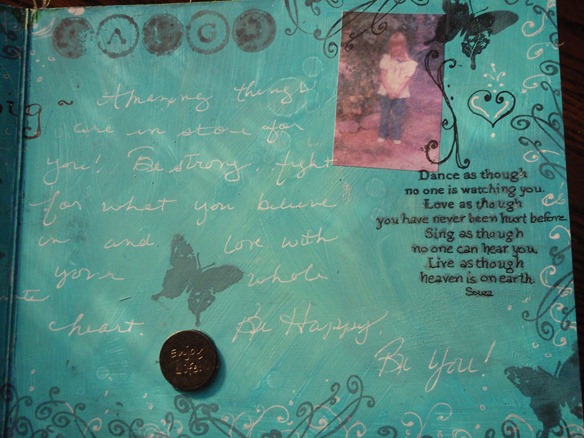 Amazing things
are in store for
you! Be strong, fight
for what you believe
in and love with
your whole
heart. Be Happy.
Be You!
Enjoy
Life!
Dance as though
no one is watching you.
Love as though
you have never been hurt before.
Sing as though
no one can hear you.
Live as though
heaven is on earth.
Souza